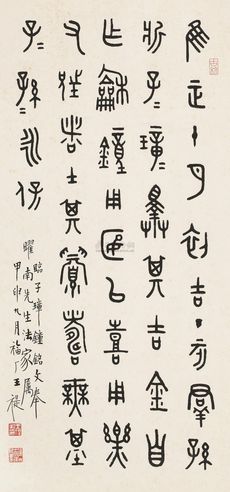 隹正十月初吉丁亥羣孫
斨子子璋擇其吉金自
乍龢鐘用匽以喜用樂
父兄者士其眉壽無基
子子孫孫永保
臨子璋鐘銘文奉
曜南先生法家屬
甲申九月福厂王禔